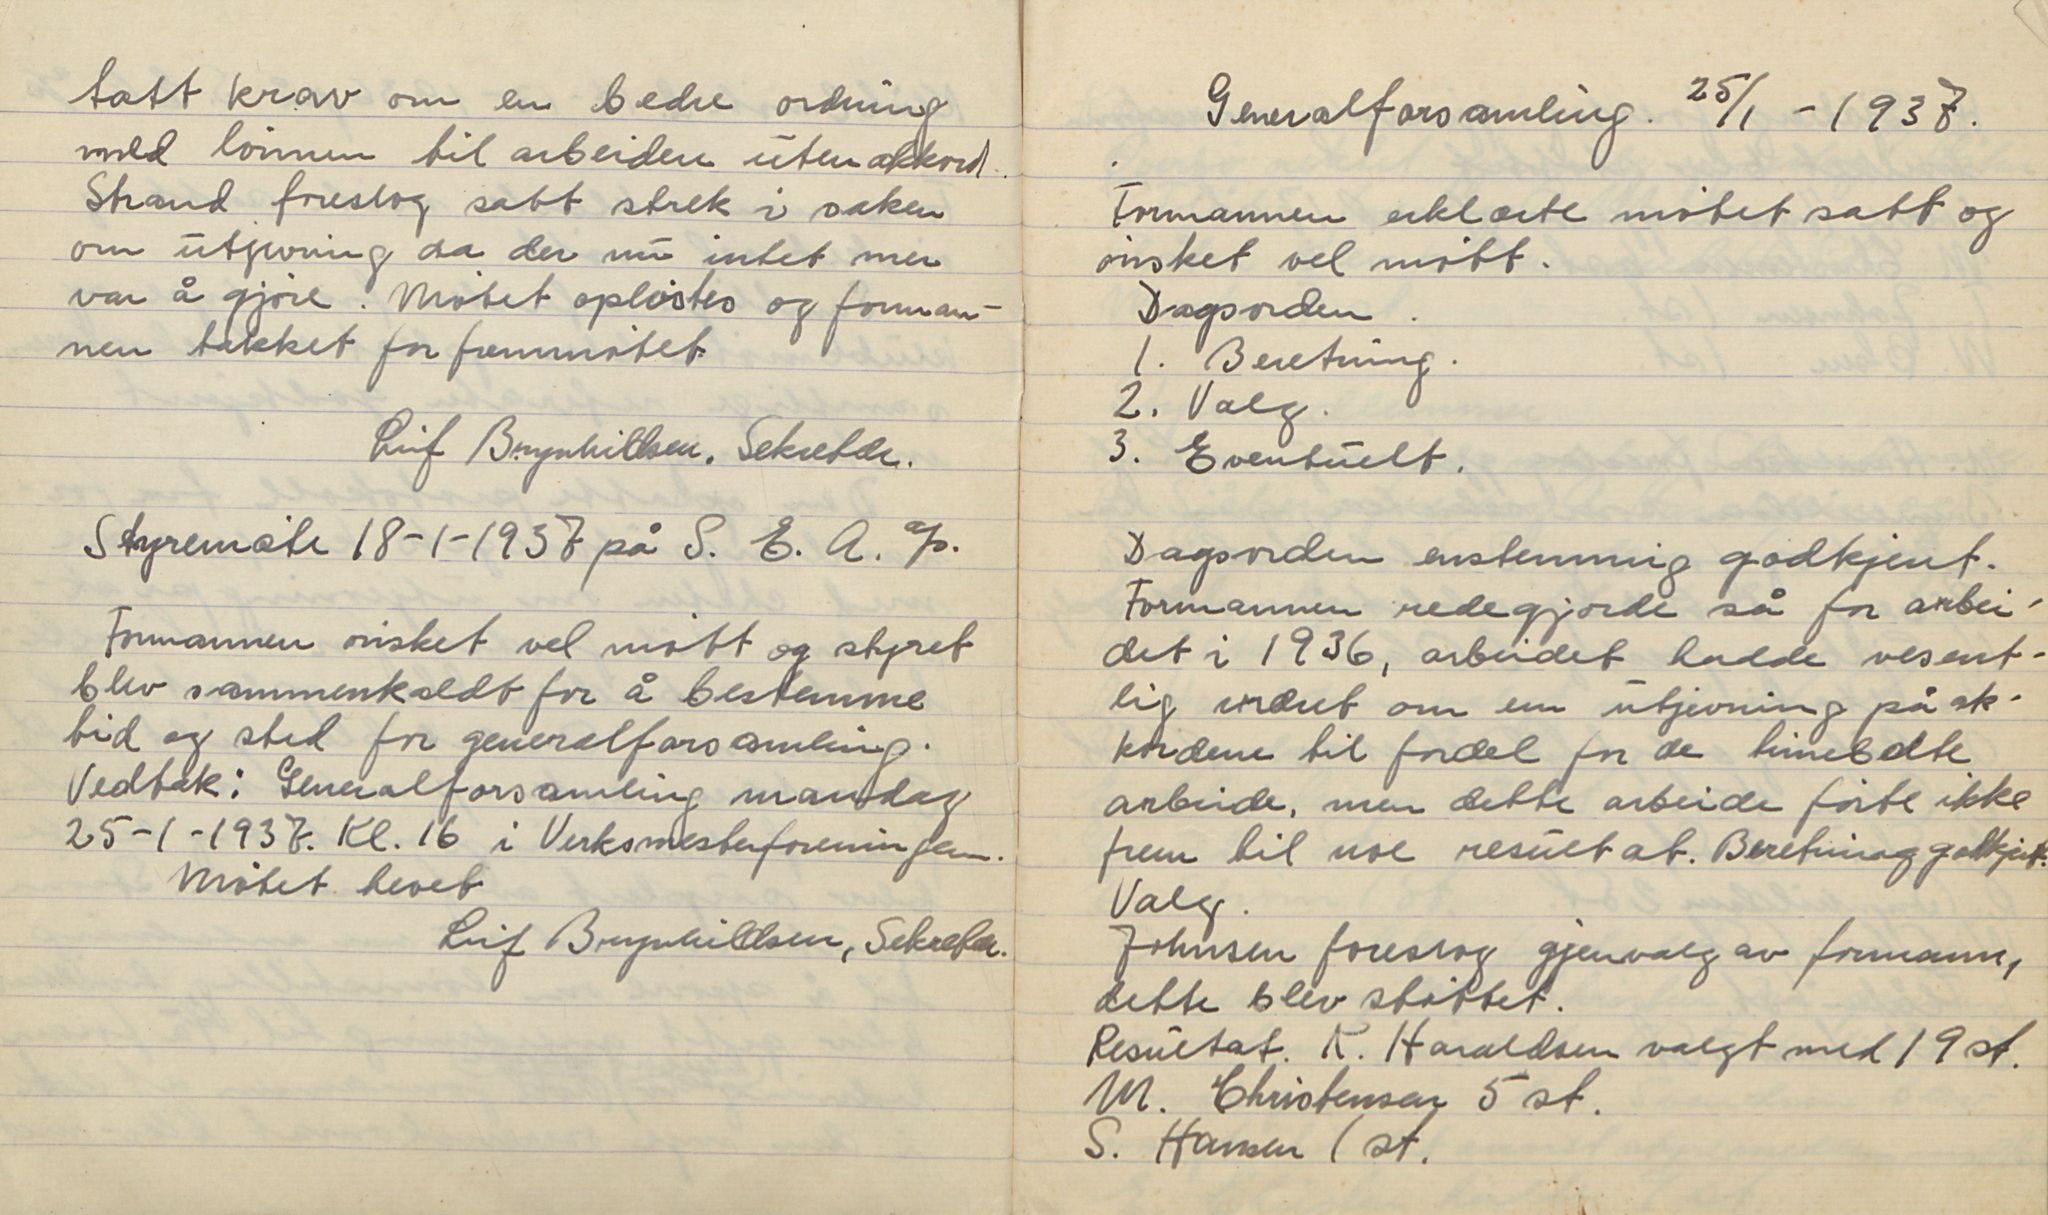 tatt krav om en bedre ordning
med lönnen til arbeidere uten akkord.
Strand foreslog satt strek i saken
om utjevning da der nu intet mer
var å gjöre. Mötet oplöstes og forman-
nen takket for fremmötet
Leif Brynhildsen, Sekretær.
Styremöte 18-1-1937 på S. E. A. A/S.
Formannen önsket vel mött og styret
blev sammenkaldt for å bestemme
tid og sted for generalforsamling.
Vedtak: Generalforsamling mandag
25-1-1937. Kl. 16 i Verksmesterforeningen.
Mötet hevet
Leif Brynhildsen, Sekretær.
Generalforsamling. 25/1 - 1937.
Formannen erklærte mötet satt og
önsket vel mött.
Dagsorden.
1. Beretning.
2. Valg.
3. Eventuelt.
Dagsorden enstemmig godkjent.
Formannen redegjorde så for arbei-
det i 1936, arbeidet hadde vesent-
lig været om en utjevning på ak-
kordene til fordel for de timebetalte
arbeide, men dette arbeide förte ikke
frem til noe resultat. Beretning godkjent.
Valg.
Johnsen foreslog gjenvalg av formann,
dette blev stöttet.
Resultat. K. Haraldsen valgt med 19 st.
M. Christensen 5 st.
S. Hansen 1 st.